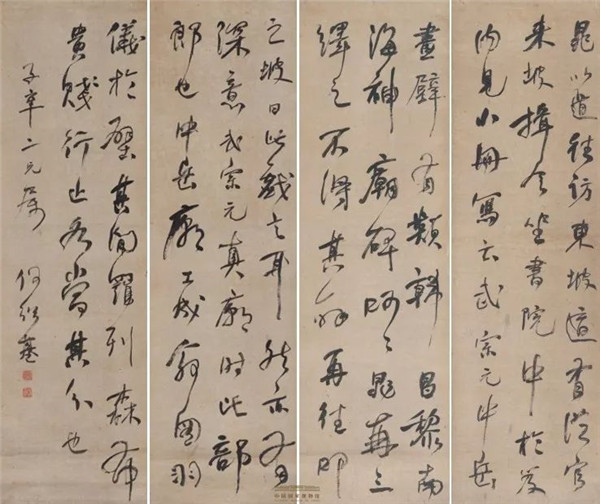 晁以道往訪東坡適有從官
來坡揖令坐書院中於几
内見小冊寫云武宗元中岳
畫壁有類韓昌黎南
海神廟碑呵呵晁再三
繹之不得其解再往叩
之坡曰此戲言耳然亦有
深意武宗元真廟時比部
郎也中岳廟工成圖羽
儀於壁其間羅列森布
貴賤行止各當其分也
子章二兄屬 何紹基